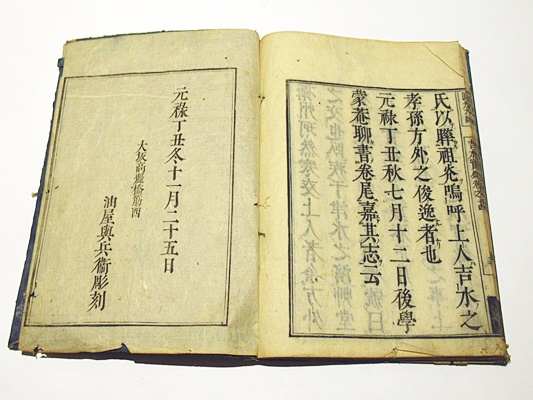 氏以聯祖炎嗚呼上人吉水之
孝孫方外之俊逸者也
元祿丁丑秋七月十二日後學
蒙菴聊書卷尾嘉其志云
元祿丁丑冬十一月二十五日
大坂高麗橋筋西
油屋與兵衞彫刻